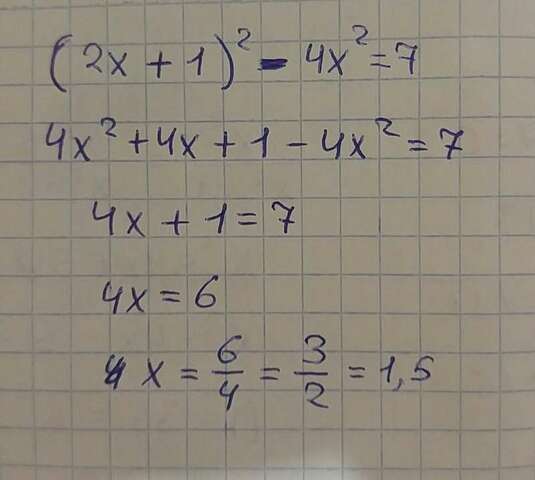 (2x + 1)² - 4x² = 7
4x² + 4x + 1 - 4x² = 7
4x + 1 = 7
4x = 6
4 x = 6/4 = 3/2 = 1,5